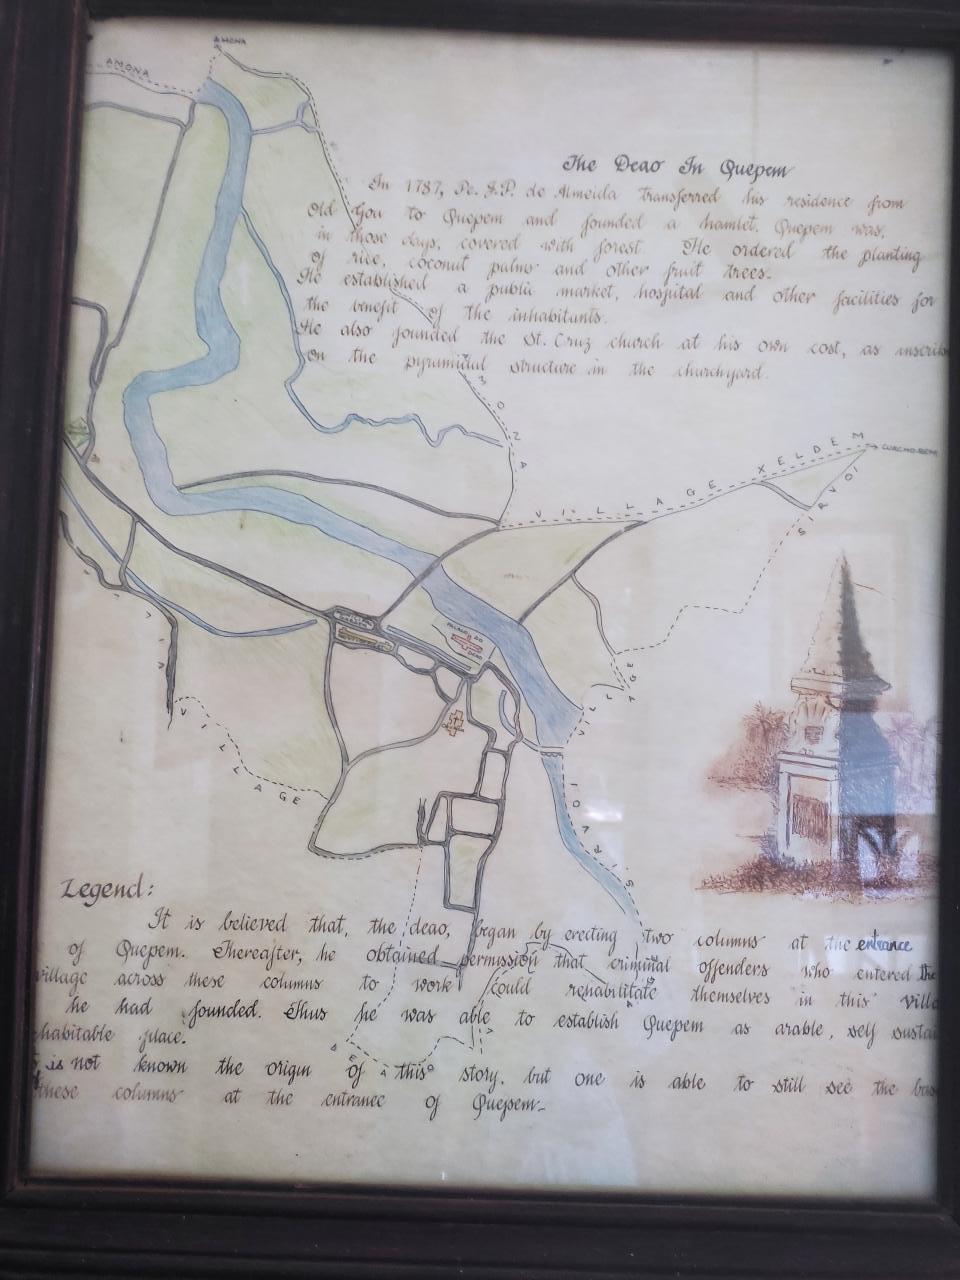 AMONA
AMONA
The Deao In Quepem
In 1787, Pe. J.P. de Almeida transferred his residence from
Old Goa to Quepem and founded a hamlet. Quepem was,
in those days, covered with forest. He ordered the planting
of rice, coconut palms and other fruit trees.
He established a public market, hospital and other facilities for
the benefit of the inhabitants.
He also founded the St. Cruz church at his own cost, as
on the pyramidal structure in the churchyard.
VILLAGE XELDEM
SIRVOI
PALACIO DO
DEAO
VILLAGE
SIRVOI
VILLAGE
Legend:
It is believed that, the deao, began by erecting two columns at the entrance
of Quepem. Thereafter, he obtained permission that criminal offenders who entered the
village across these columns to work could rehabilitate themselves in this
he had founded. Thus he was able to establish Quepem as arable, self
habitable place.
is not known the origin of this story, but one is able to still see the
these columns at the entrance of Quepem.